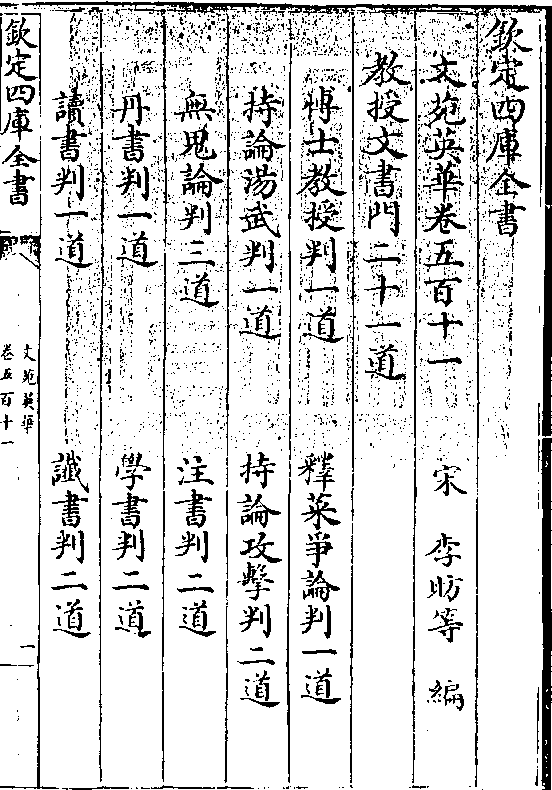 欽定四庫全書
文苑英華卷五百十一 宋 李昉等 編
教授文書門二十一道
博士教授判一道 釋菜爭論判一道
持論湯武判一道 持論攻擊判二道
無鬼論判三道 注書判二道
丹書判一道 學書判二道
讀書判一道 讖書判二道
欽定四庫全書
文苑英華
卷五百十一
一